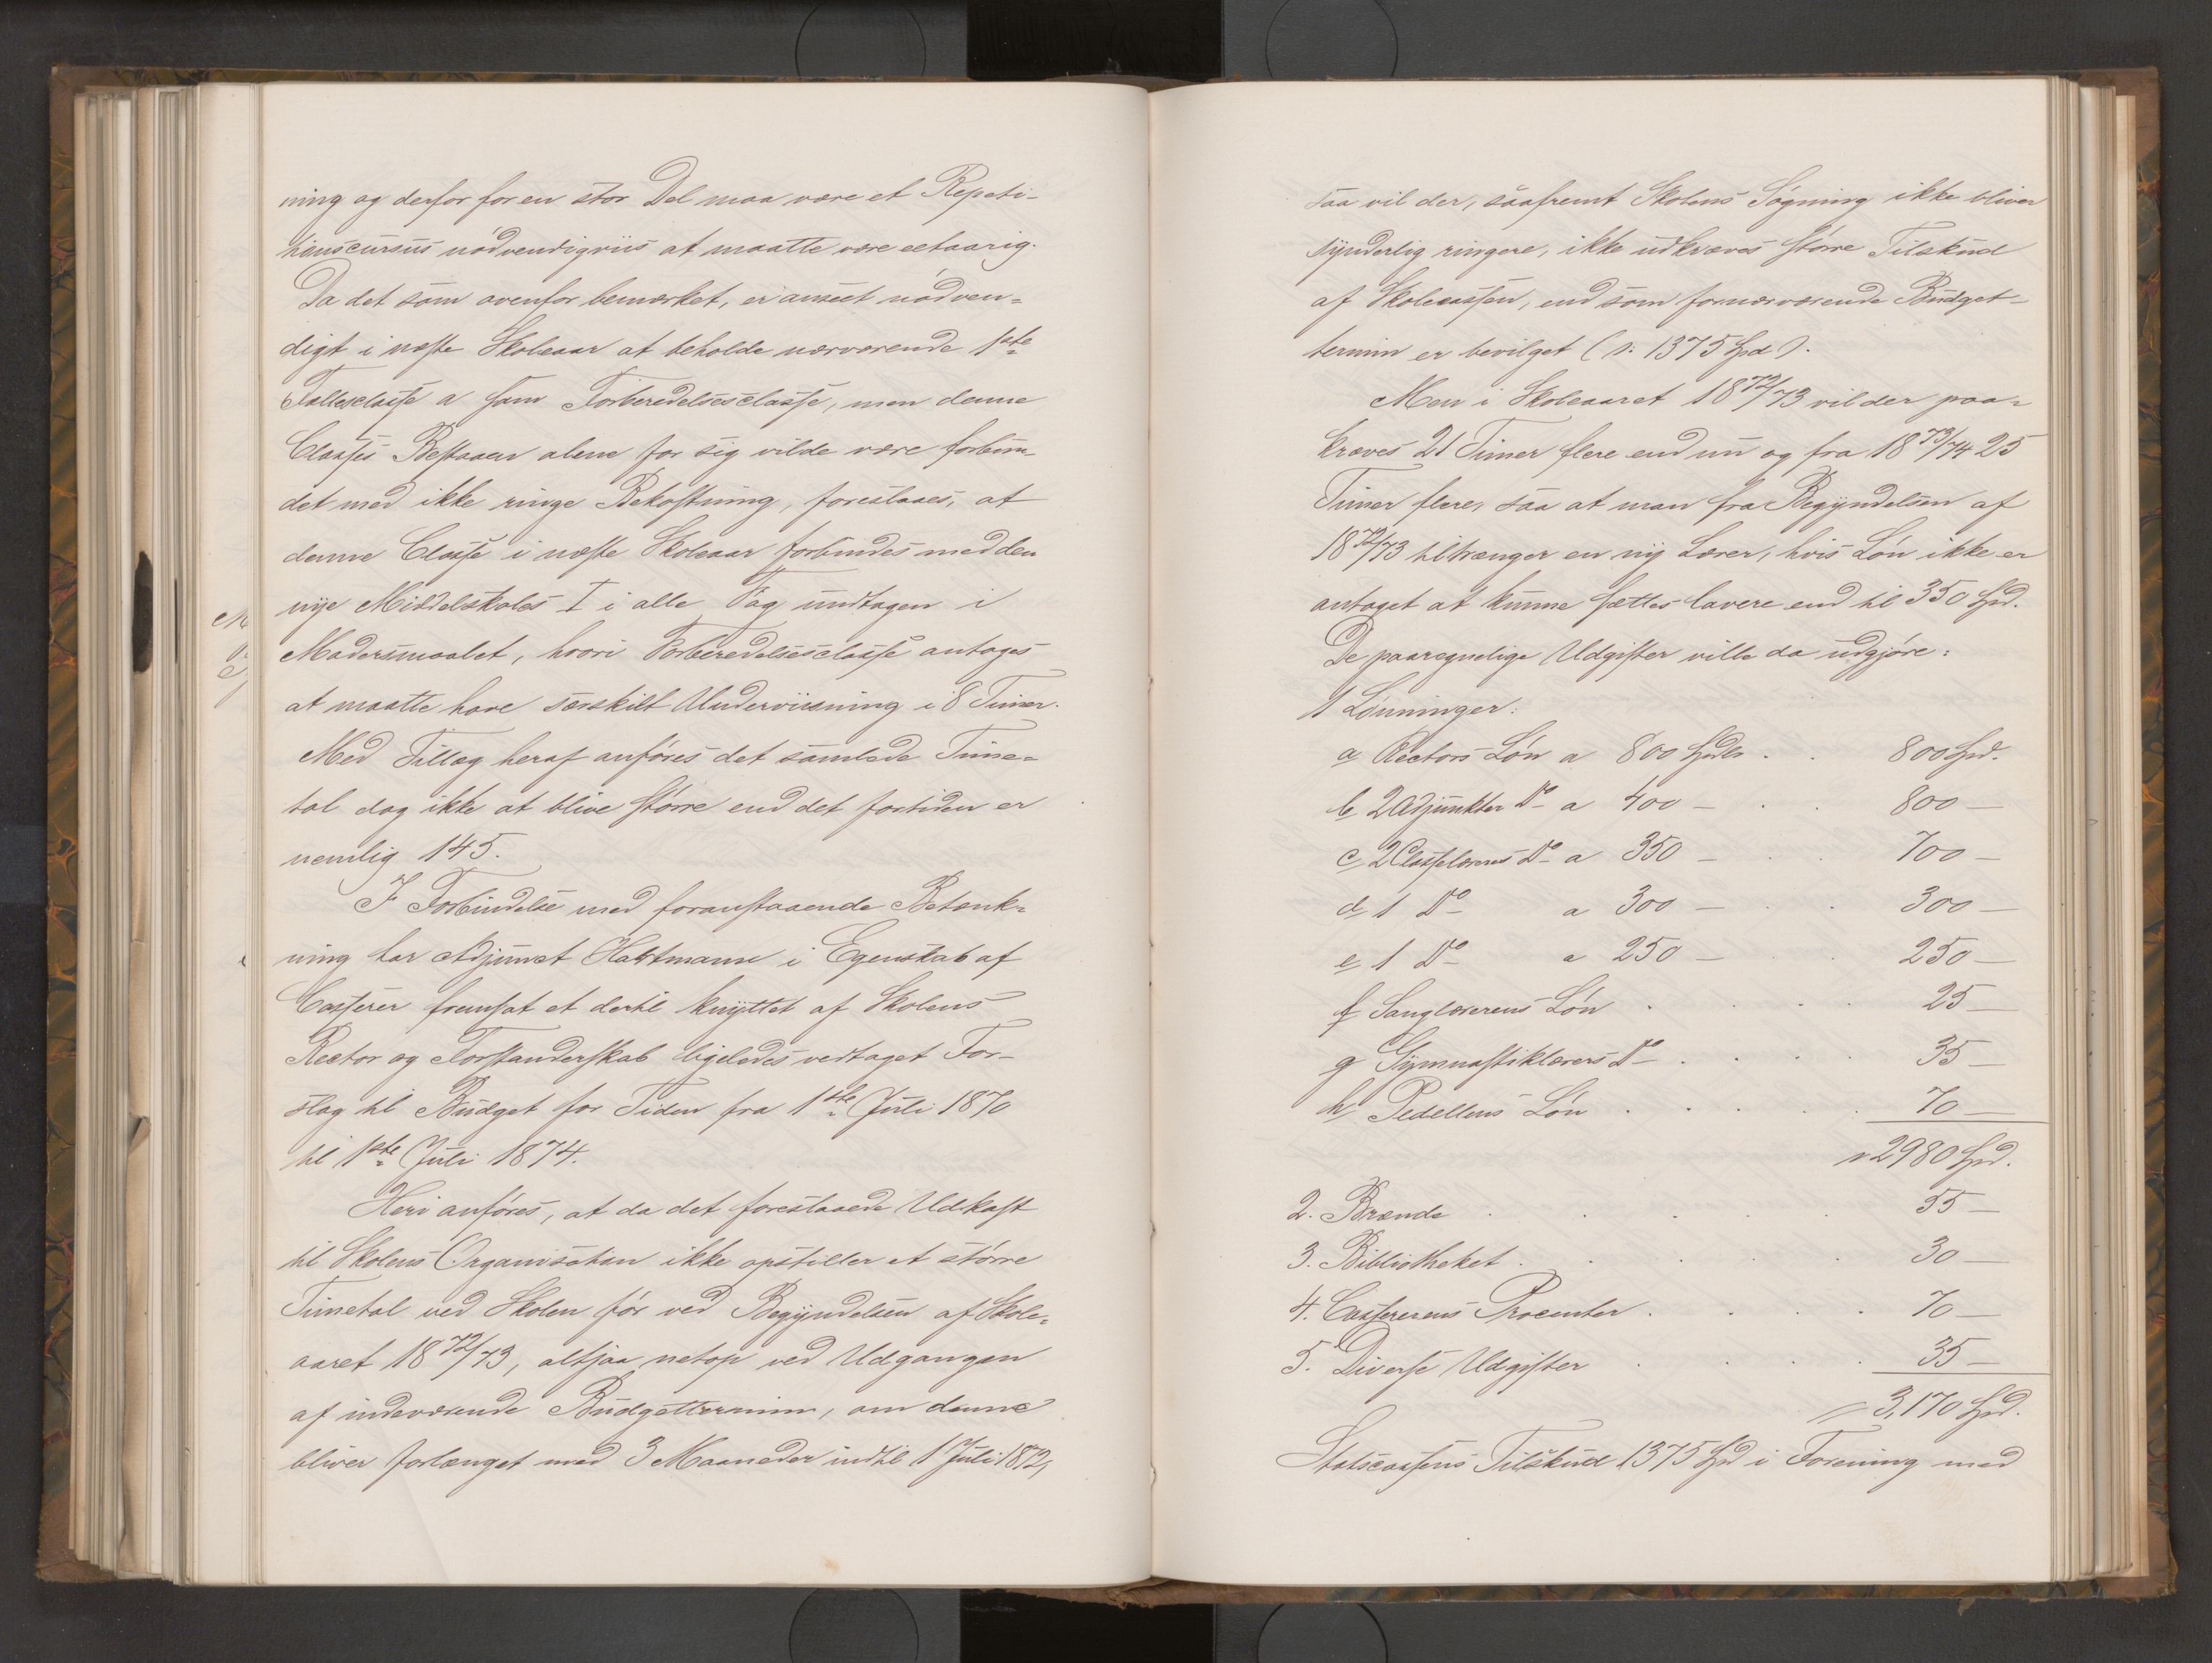 ning og derfor for en stor Del maa være et Repeti-
tionscursus nödvendigviis at maatte være eetaarig.
Da det som ovenfor bemærket, er anseet nödven-
digt i næste Skoleaar at beholde nærværende 1ste
Fællesclasse a som Forberedelsesclasse, men denne
Classes Bestaaen alene for sig vilde være forbun-
det med ikke ringe Bekostning, foreslaaes, at
denne Classe i næste Skoleaar forbindes med den
nye Middelskoles I i alle Fag undtagen i
Modersmaalet, hvori Forberedelsesclasse antages
at maatte have særskilt Underviisning i 8 Timer.
Med Tillæg heraf anföres det samlede Time-
tal dog ikke at blive större end det fortiden er
nemlig 145.
I Forbindelse med foranstaaende Betænk-
ning har Adjunct Hartmann i Egenskab af
Casserer fremsat et dertil knyttet af Skolens
Rector og Forstanderskab ligeledes vedtaget For-
slag til Budget for Tiden fra 1ste Juli 1870
til 1ste Juli 1874.
Heri anföres, at da det foreslaaede Udkast
til Skolens Organisation ikke opstiller et större
Timetal ved Skolen för ved Begyndelsen af Skole-
aaret 1872/73, altsaa netop ved Udgangen
af indeværende Budgettermin, om denne
bliver forlænget med 3 Maaneder indtil 1 Juli 1872,
saa vil der, saafremt Skolens Sögning ikke bliver
synderlig ringere, ikke udkræves större Tilskud
af Skolecassen, end som for nærværende Budget-
termin er bevilget (ɔ: 1375 Spd).
Men i Skoleaaret 1872/73 vil der paa-
kræves 21 Timer flere end nu og fra 1873/74 25
Timer flere, saa at man fra Begyndelsen af
1872/73 tiltrænger en ny Lærer, hvis Lön ikke er
antaget at kunne sættes lavere end til 350 Spd.
De paaregnelige Udgifter ville da udgjöre:
1 Lönninger:
a Rectors Lön a 800 Spdlr . . 800 Spd.
b 2 Adjunkter Do a 400 — . . 800 —
c 2 Classelæreres Do a 350 — . . 700 —
d 1 Do a 300 — . . 300 —
e 1 Do a 250 — . . 250 —
f Sanglærerens Lön . . . . 25 —
g Gymnastiklærers Do . . . . 35 —
h Pedellens Lön . . . . . 70 —
2980 Spd.
2. Brænde . . . . . 55 —
3. Bibliotheket . . . . . 30 —
4. Cassererens Procenter . . . . 70 —
5. Diverse Udgifter . . . . 35 —
3,170 Spd.
Statscassens Tilskud 1375 Spd i Forening med